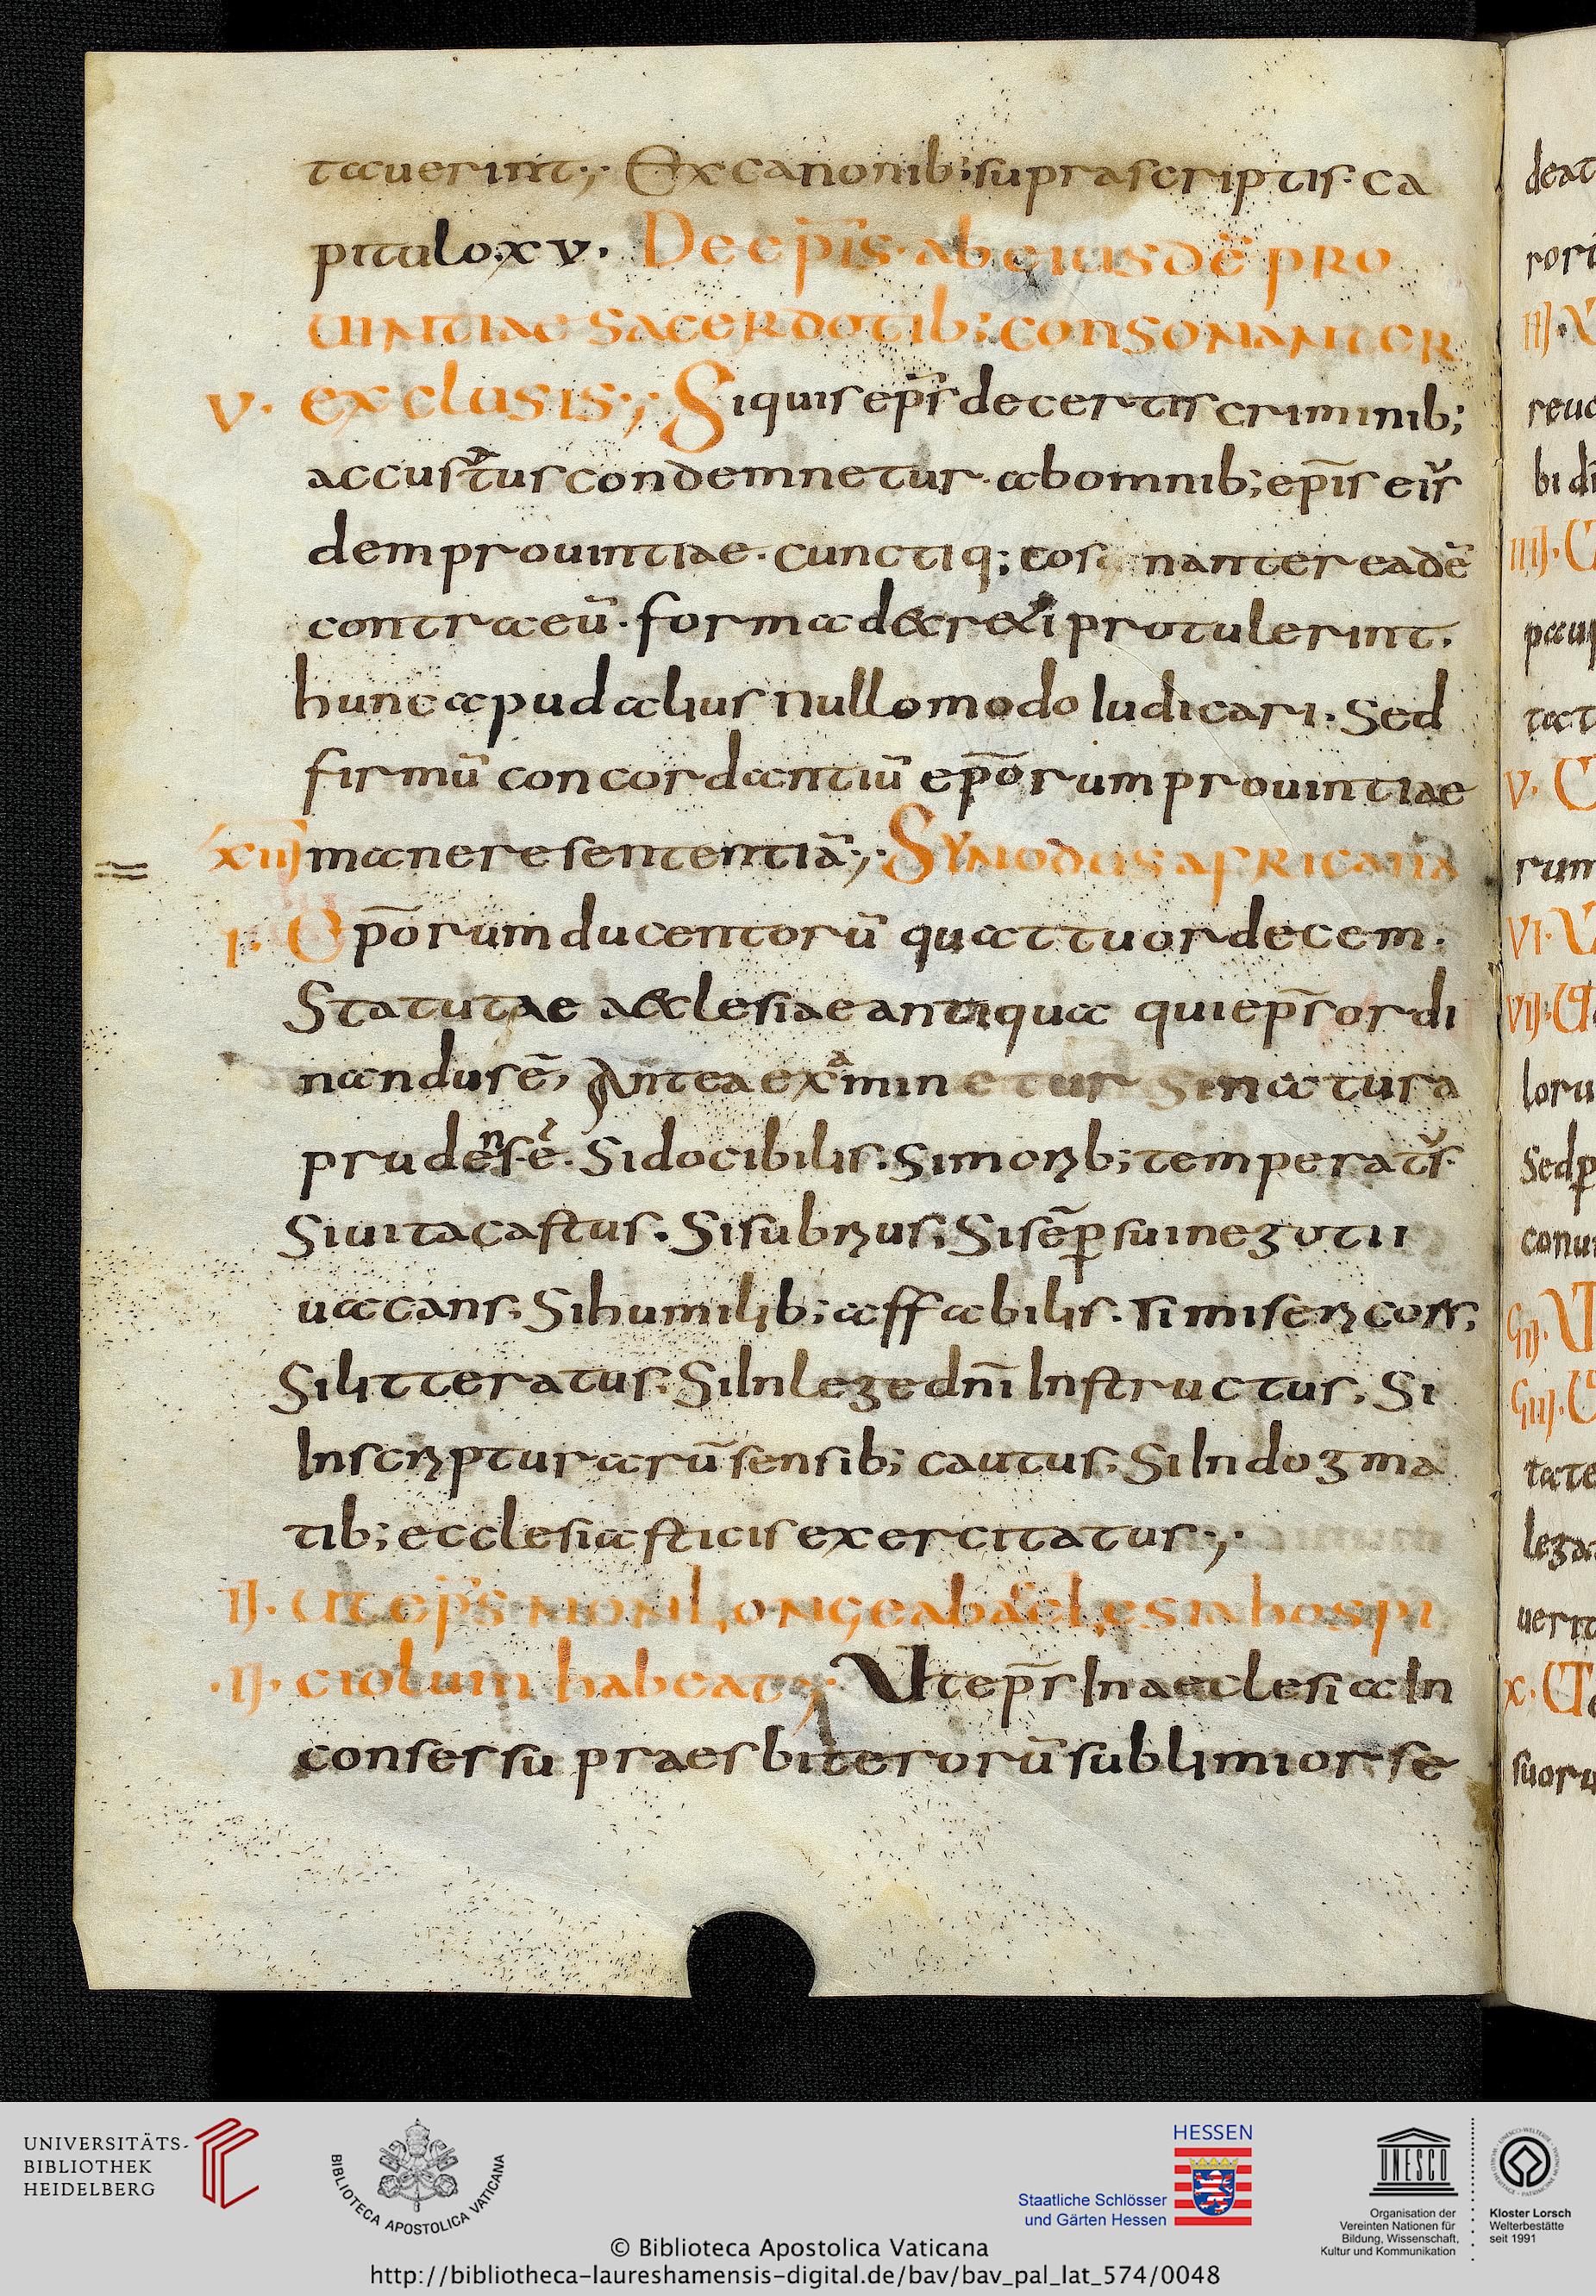 tauerint; Ex canonib; suprascriptis. ca
pitulo. xv. De ep̄is. ab eiusdē pro
uintiae sacerdotib; consonanter
v. exclusis; Siquis ep̄s de certis criminib;
accustatus condemnetur. ab omnib; ep̄is eiꝰs
dem prouintiae. cunctiq; cos nanter eadē
contra eū. forma decreti protulerint.
hunc apud alius nullo modo Iudicari. Sed
firmū concordantiū ep̄orum prouintiae
xiiij manere sententiā; Synodus africana
I. Ep̄orum ducentorū quattuordecem.
Statutae aecclesiae antiqua qui ep̄s ordi
nandus ē, Antea examinetur Si natura
prudens. ē. Si docibilis. Si morib; temperatꝰs
Si uita castus. Si subrius, Si sēp sui negotii
uacans, Si humilib; affabilis. si misericors,
Si litteratus. Si In lege dn̄i Instructus, Si
In scripturarū sensib; cautus, Si In dogma
tib; ecclesiasticis exercitatus;
II. Ut ep̄s non longe ab aeclesia hospi
.II. ciolum habeat; Ut ep̄s In aeclesia In
consessu praesbiterorū sublimior se
deat
rori
III.
reuo
bi di
IIII. C
tat
V. C
rum
VI.
VII.
loru
Sed p
conu
tate
lega
uerit
X.
suoru
UNIVERSITÄTS-
BIBLIOTHEK
HEIDELBERG
BIBLIOTECA APOSTOLICA VATICANA
HESSEN
Staatliche Schlösser
und Gärten Hessen
UNESCO
Organisation der
Vereinten Nationen für
Bildung, Wissenschaft,
Kultur und Kommunikation
WORLD HERITAGE • PATRIMOINE MONDIAL
Kloster Lorsch
Welterbestätte
seit 1991
© Biblioteca Apostolica Vaticana
http://bibliotheca-laureshamensis-digital.de/bav/bav_pal_lat_574/0048